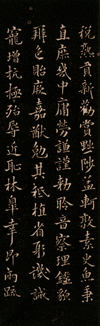 稅熟貢新勸賞黜陟孟軻敦素史魚秉
直庶幾中庸勞謙謹勑聆音察理鑑貌
辨色貽厥嘉猷勉其祗植省躬譏誡
寵增抗極殆辱近恥林皋幸即兩疏